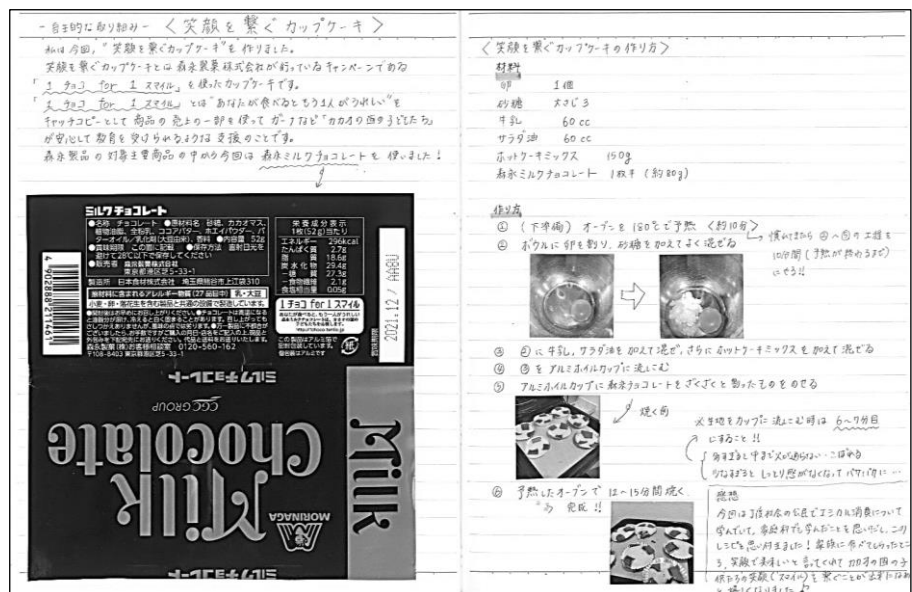 -自主的な取り組み- 〈笑顔を繋ぐカップケーキ〉
私は今回、"笑顔を繋ぐカップケーキ"を作りました。
笑顔を繋ぐカップケーキとは森永製菓株式会社が行っているキャンペーンである
「1 チョコ for 1 スマイル」を使ったカップケーキです。
「1 チョコ for 1 スマイル」とは"あなたが食べるともう1人がうれしい"を
キャッチコピーとして商品の売上の一部を使ってガーナなど「カカオの国の子どもたち」
が安心して教育を受けられるような支援のことです。
森永製品の対象主要商品の中から今回は森永ミルクチョコレートを使いました!
ミルクチョコレート
●名称 チョコレート ●原材料名 砂糖、カカオマス、
植物油脂、全粉乳、ココアバター、ホエイパウダー、バ
ターオイル/乳化剤(大豆由来)、香料 ●内容量 52g
●賞味期限 この面に記載 ●保存方法 直射日光を
避けて28℃以下で保存してください
●販売者 森永製菓株式会社
東京都港区芝5-33-1
製造所 日本食材株式会社 埼玉県熊谷市上江袋310
原材料に含まれるアレルギー物質(27品目中) 乳・大豆
小麦・卵・落花生を含む製品と共通の設備で製造しています。
森永製菓(株)お客様相談室 0120-560-162
〒108-8403 東京都港区芝5-33-1
栄養成分表示
1枚(52g)当たり
エネルギー 296kcal
たんぱく質 2.7g
脂質 18.6g
炭水化物 29.4g
-糖質 27.3g
-食物繊維 2.1g
食塩相当量 0.05g
1チョコ for 1スマイル
この製品はアルミ箔で
密封包装しています。
個包装はアルミです
紙
賞味期限
2021.12 / AABU
4902888211461
ミルクチョコレート
ミルクチョコレート
CGC GROUP
Milk
Chocolate
MORINAGA
Milk
〈笑顔を繋ぐカップケーキの作り方〉
材料
卵 1個
砂糖 大さじ3
牛乳 60cc
サラダ油 60cc
ホットケーキミックス 150g
森永ミルクチョコレート 1枚半 (約80g)
作り方
① (下準備) オーブンを180℃で予熱 〈約10分〉
② ボウルに卵を割り、砂糖を加えてよく混ぜる
慣れてきたら②~⑤の工程を
10分間(予熱が終わるまで)
にやろう!
③ ②に牛乳、サラダ油を加えて混ぜ、さらにホットケーキミックスを加えて混ぜる
④ ③をアルミホイルカップに流しこむ
⑤ アルミホイルカップに森永チョコレートをざくざくと割ったものをのせる
焼く前
※生地をカップに流しこむ時は 6~7分目
にすること!!
多すぎると中まで火が通らない…こぼれる
少なすぎると しっとり感がなくなってパサパサに…
⑥ 予熱したオーブンで 12~15分間焼く
完成!!
感想
今回は1学期の公民でエシカル消費について
学んでいて、家庭科でも学んだことを思いだし、この
レシピを思い付きました!家族に食べてもらったとこ
ろ、笑顔で美味しいと言ってくれてカカオの国の子
供たちの笑顔(スマイル)を繋ぐことが出来になれ